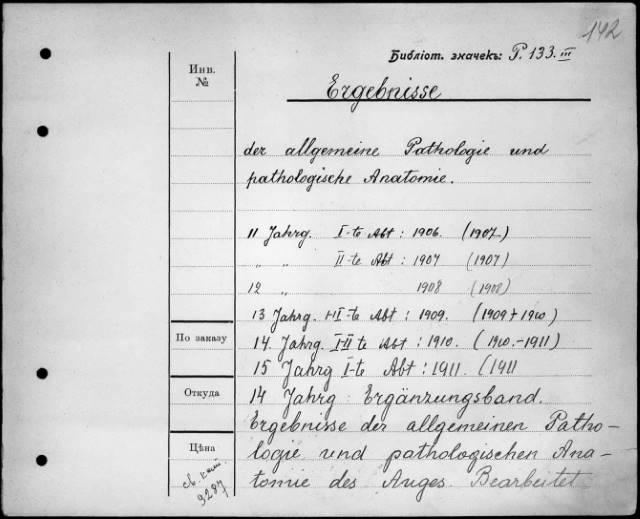 142
Библіот. значекъ: P. 133. III
Инв.
№
Ergebnisse
der allgemeine Pathologie und
pathologische Anatomie.
11 Jahrg. I-te Abt: 1906. (1907)
" " II-te Abt: 1907 (1907)
12 " 1908 (1908)
13 Jahrg. I-te Abt: 1909. (1909+1910)
14. Jahrg. I-II te Abt: 1910. (1910.-1911)
По заказу
15 Jahrg I-te Abt: 1911. (1911
Откуда
14 Jahrg Ergänzungsband.
Ergebnisse der allgemeinen Patho-
Цѣна
logie und pathologischen Ana-
tomie des Auges. Bearbeitet
св. кат.
9287